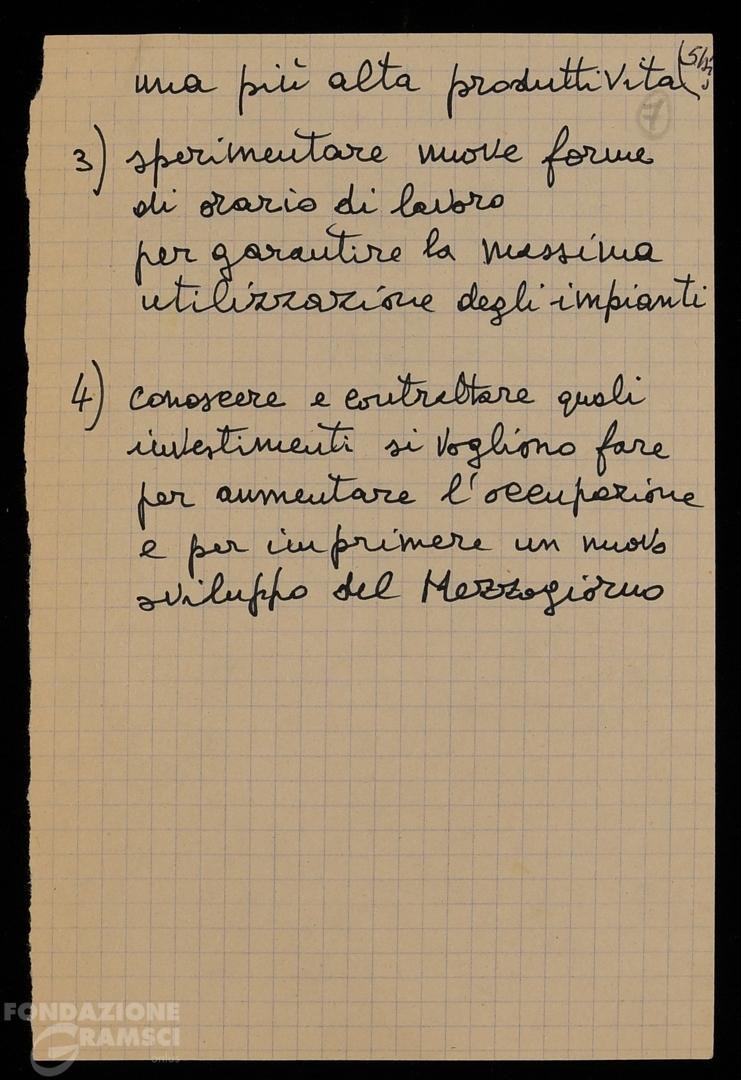 una più alta produttività
7
3) sperimentare nuove forme
di orario di lavoro
per garantire la massima
utilizzazione degli impianti
4) conoscere e contrattare quali
investimenti si vogliono fare
per aumentare l'occupazione
e per imprimere un nuovo
sviluppo del Mezzogiorno
FONDAZIONE
GRAMSCI
onlus